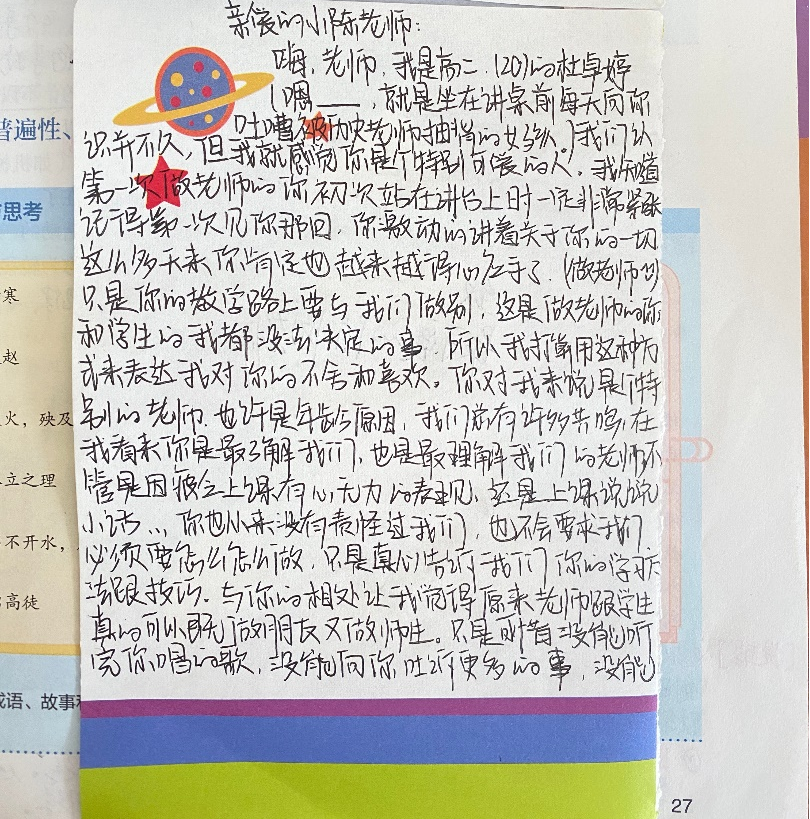 亲爱的小陈老师：
嗨，老师，我是高二（20）的杜卓婷
（嗯____，就是坐在讲桌前每天向你
吐嘈被历史老师抽背的女孩）我们认
识并不久，但我就感觉你是个特别可爱的人。我知道
第一次做老师的你初次站在讲台上时一定非常紧张
记得第一次见你那回，你激动的讲着关于你的一切
这么多天来你肯定也越来越得心应手了（做老师
只是你的教学路上要与我们做别，这是做老师的你
和学生的我都没法决定的事，所以我打算用这种方
式来表达我对你的不舍和喜欢。你对我来说是个特
别的老师，也许是年龄原因，我们总有许多共鸣，在
我看来你是最了解我们，也是最理解我们的老师，不
管是因疲乏上课有心无力的表现，还是上课说说
小话...，你也从来没有责怪过我们，也不会要求我们
必须要怎么怎么做，只是真心告诉我们你的学习方
法跟技巧。与你的相处让我觉得原来老师跟学生
真的可以既做朋友又做师生。只是可惜没能听
完你唱的歌，没能向你吐诉更多的事，没能
普遍性、
思考
寒
赵
火，殃及
立之理
不开水，
高徒
成语、故事和
27